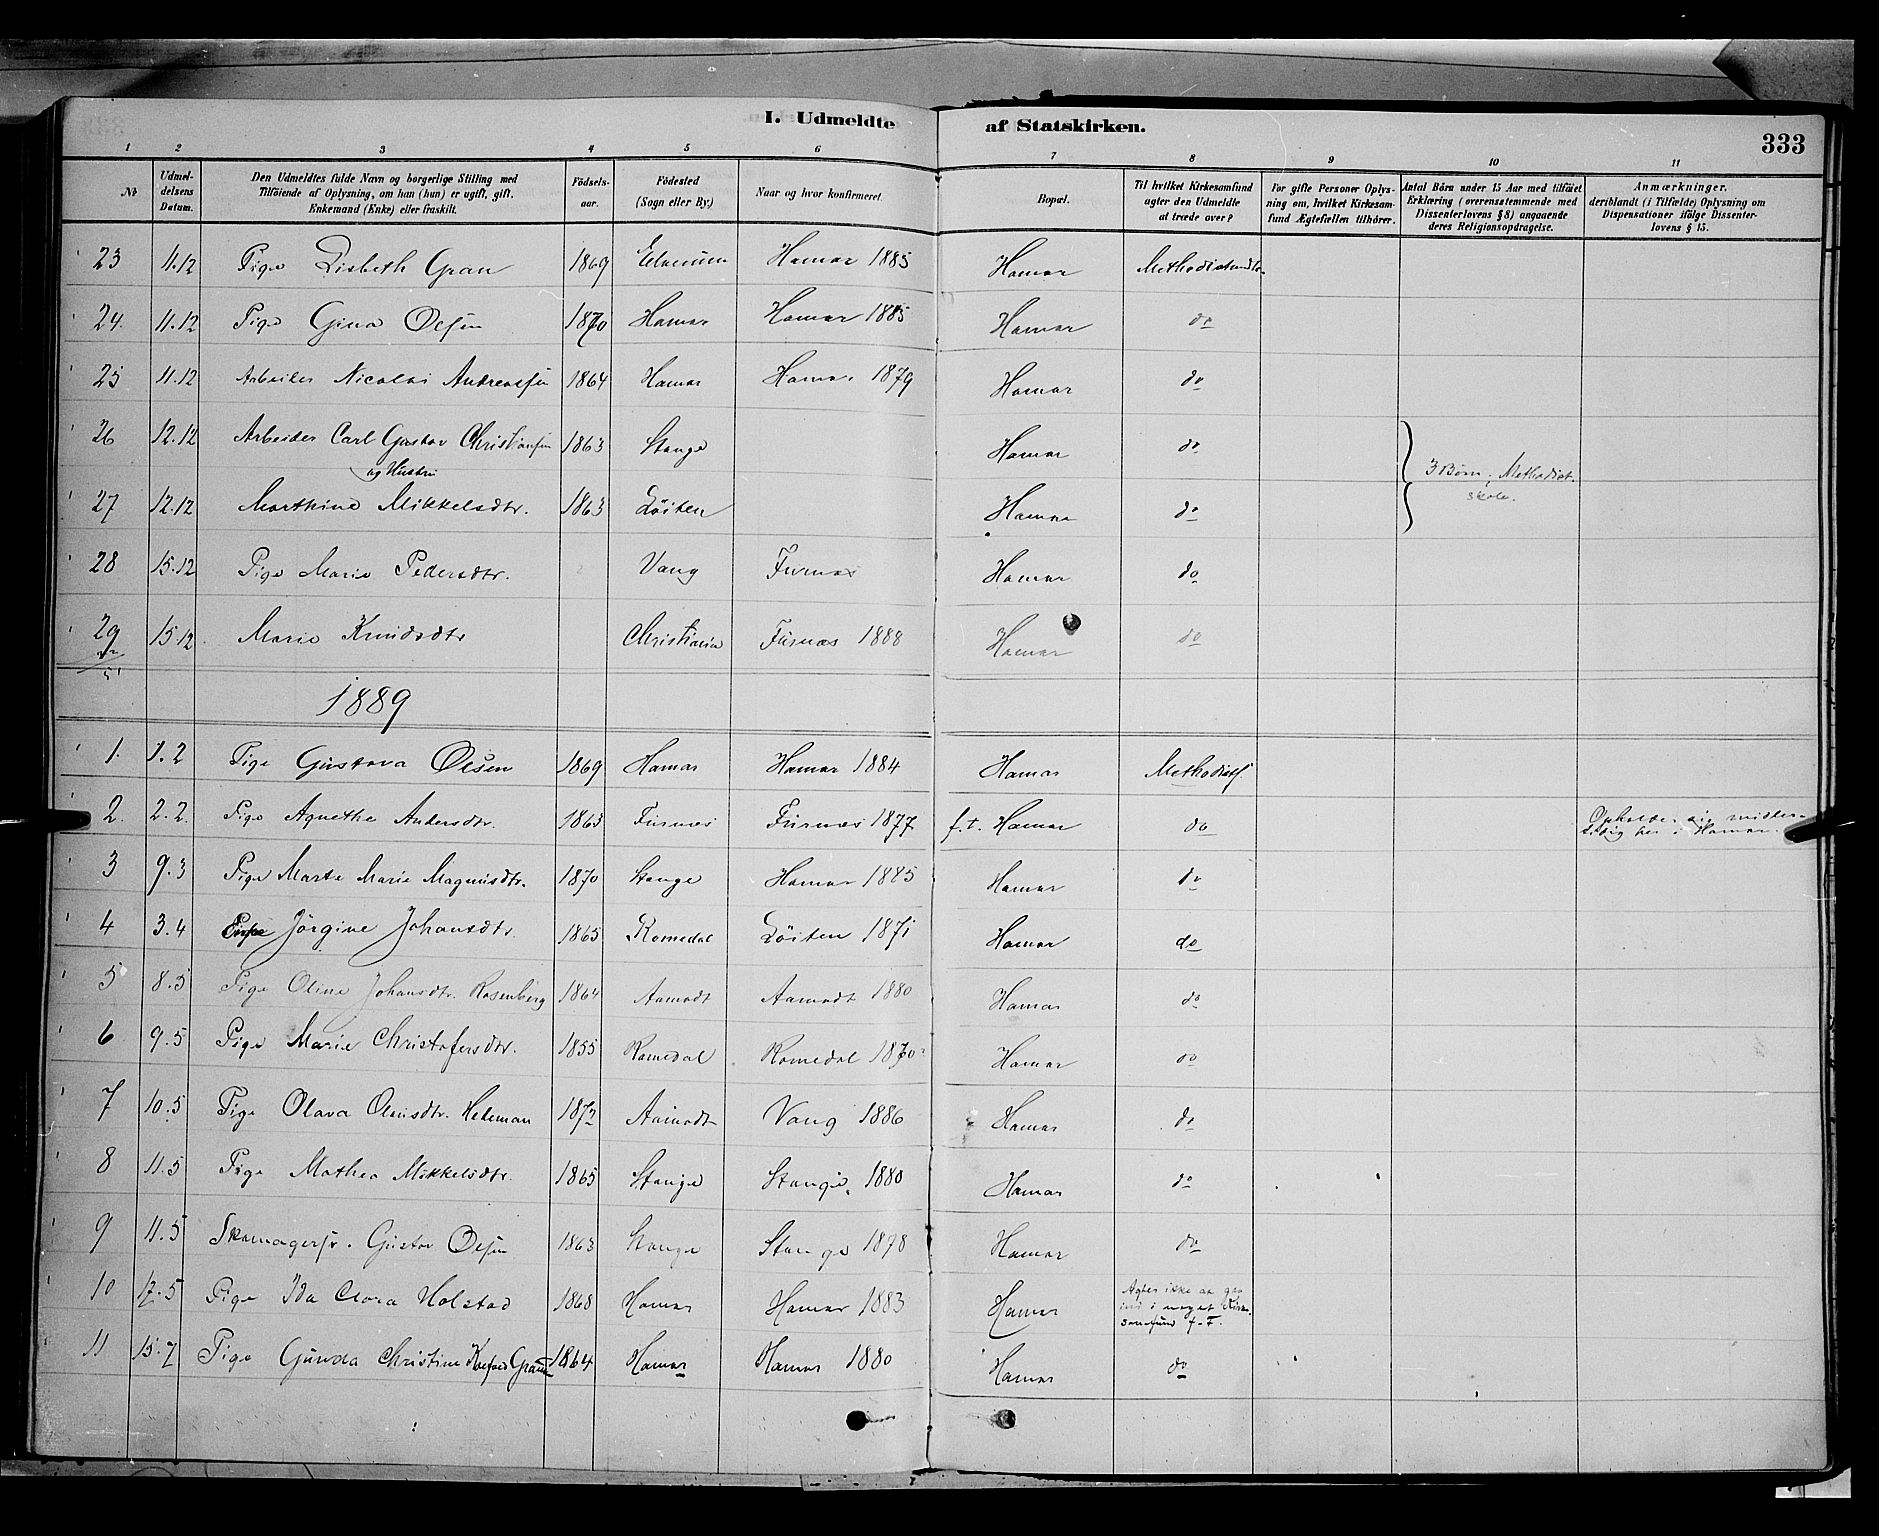 I. Udmeldte af Statskirken.
333
1 2 3 4 5 6 7 8 9 10 11
No
Udmel-
delsens
Datum.
Den Udmeldtes fulde Navn og borgerlige Stilling med
Tilföiende af Oplysning, om han (hun) er ugift, gift,
Enkemand (Enke) eller fraskilt.
Födsels-
aar.
Födested
(Sogn eller By.)
Naar og hvor konfirmeret.
Bopæl.
Til hvilket Kirkesamfund
agter den Udmeldte
at træde over?
For gifte Personer Oplys-
ning om, hvilket Kirkesam-
fund Ægtefællen tilhörer.
Antal Börn under 15 Aar med tilföiet
Erklæring (overensstemmende med
Dissenterlovens § 8) angaaende
deres Religionsopdragelse.
Anmærkninger,
deriblandt (i Tilfælde) Oplysning om
Dispensationer ifölge Dissenter-
lovens § 15.
23 11.12 Pige Lisbeth Gran 1869 Elverum Hamar 1885 Hamar
24. 11.12 Pige Gina Olsen 1870 Hamar Hamar 1885 Hamar do
25 11.12 Arbeider Nicolai Andreassen 1864 Hamar Hamar 1879 Hamar do
26 12.12 Arbeider Carl Gustav Christiansen 1863 Stange Hamar do
og Hustru
3 Børn, Methodist.
skole.
27 12.12 Marthine Mikkelsdtr. 1863 Löiten Hamar do
28 15.12 Pige Marie Pedersdtr. Vang Furnæs Hamar do
29 15.12 Marie Knudsdtr Christiania Furnæs 1888 Hamar do
1889
1. 1.2 Pige Gustava Olsen 1869 Hamar Hamar 1884 Hamar Methodistf
2. 2.2. Pige Agnethe Andersdtr. 1863 Furnæs Furnæs 1877 f.t. Hamar do
Opholder sig midler-
tidig her i Hamar.
3 9.3 Pige Marte Marie Magnusdtr. 1870 Stange Hamar 1885 Hamar do
4 3.4 Jörgine Johansdtr. 1865 Romedal Löiten 1871 Hamar do
5 8.5 Pige Oline Johansdtr. Rosenberg 1864 Aamodt Aamodt 1880 Hamar do
6 9.5 Pige Marie Christofersdtr. 1855 Romedal Romedal 1870 Hamar do
7 10.5 Pige Olava Olausdtr. Heleman 1872 Aamodt Vang 1886 Hamar do
8 11.5 Pige Mathea Mikkelsdtr. 1865 Stange Stange 1880 Hamar do
9 11.5 Skomagersv. Gustav Olsen 1863 Stange Stange 1878 Hamar do
10 17.5 Pige Ida Clara Holstad 1868 Hamar Hamar 1883 Hamar
Agter ikke at gaa
ind i noget Kirke-
samfund f.T.
11 15.7 Pige Gunda Christine 1864 Hamar Hamar 1880 Hamar do